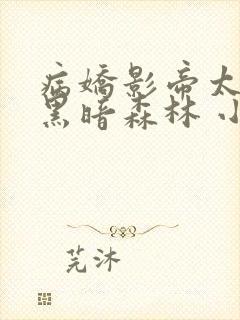 病嬌影帝太
黑暗森林 小
芫沐